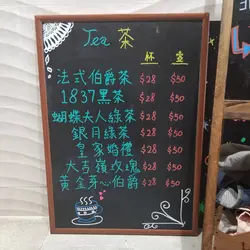 Tea 茶
杯 壺
法式伯爵茶 $28 $50
1837黑茶 $28 $50
蝴蝶夫人綠茶 $28 $50
銀月綠茶 $28 $50
皇家婚禮 $28 $50
大吉嶺玫瑰 $28 $50
黃金芽心伯爵 $28 $50